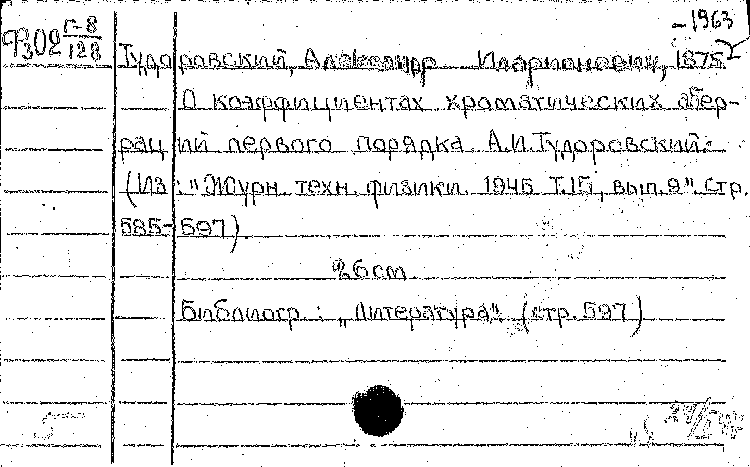 Ф302 Г-8/128
-1963
Тудоровский, Александр Иларионович, 1875
О коэффициентах хроматических абер-
раций первого порядка А.И.Тудоровский.
(Из: "Журн. техн. физики. 1945 Т.15, вып. 9". стр.
585-597).
26см
Библиогр.: "Литература" (стр. 597)
5